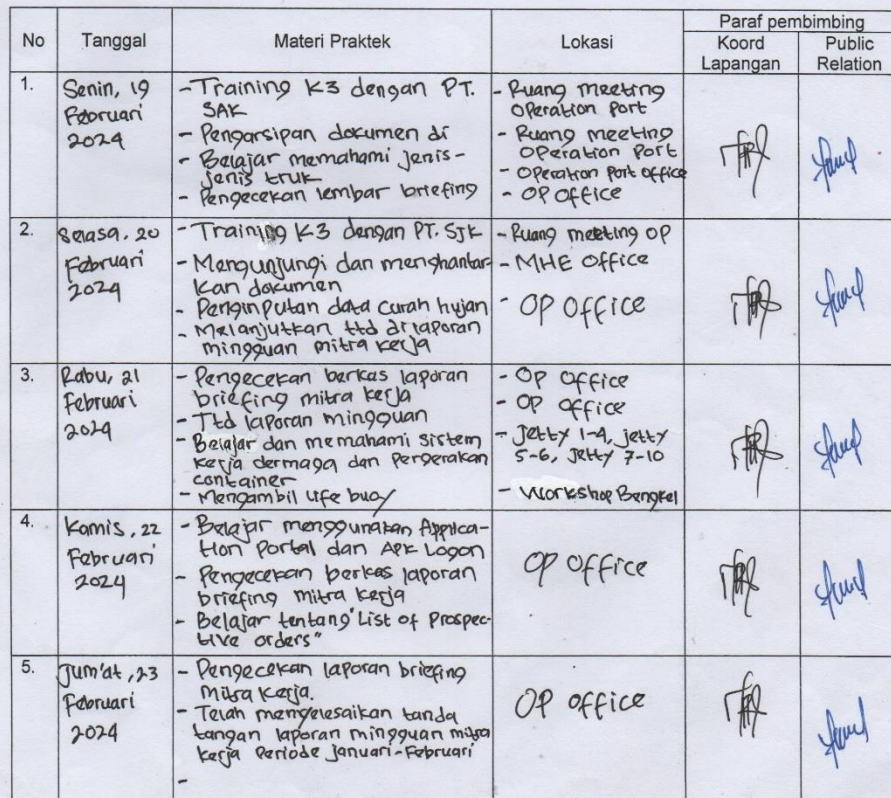 No Tanggal Materi Praktek Lokasi Paraf pembimbing
Koord Lapangan
Public Relation
1.
Senin, 19
Februari
2024
- Training K3 dengan PT.
SAK
- Pengarsipan dokumen di
- Belajar memahami jenis-
jenis truk
- Pengecekan lembar briefing
- Ruang meeting
Operation Port
- Ruang meeting
Operation Port
- Operation Port office
- OP Office
2.
Selasa, 20
Februari
2024
- Training K3 dengan PT. SJK
- Mengunjungi dan menghantar-
kan dokumen
- Penginputan data curah hujan
- Melanjutkan ttd di laporan
mingguan mitra kerja
- Ruang meeting OP
- MHE Office
- OP Office
3.
Rabu, 21
Februari
2024
- Pengecekan berkas laporan
briefing mitra kerja
- Ttd laporan mingguan
- Belajar dan memahami sistem
kerja dermaga dan Pergerakan
container
- Mengambil life buoy
- OP Office
- OP Office
- Jetty 1-4, jetty
5-6, Jetty 7-10
- Workshop Bengkel
4.
Kamis, 22
Februari
2024
- Belajar menggunakan Applica-
tion Portal dan Apk Logon
- Pengecekan berkas laporan
briefing mitra kerja
- Belajar tentang "List of Prospec-
tive orders"
OP Office
5.
Jum'at, 23
Februari
2024
- Pengecekan laporan briefing
Mitra Kerja.
- Telah menyelesaikan tanda
tangan laporan mingguan mitra
kerja Periode Januari-Februari
-
OP Office